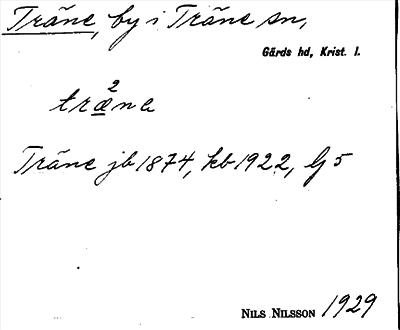 Träne, by i Träne sn,
Gärds hd, Krist. l.
2
træne
Träne jb 1874, kb 1922, G 5
NILS NILSSON 1929